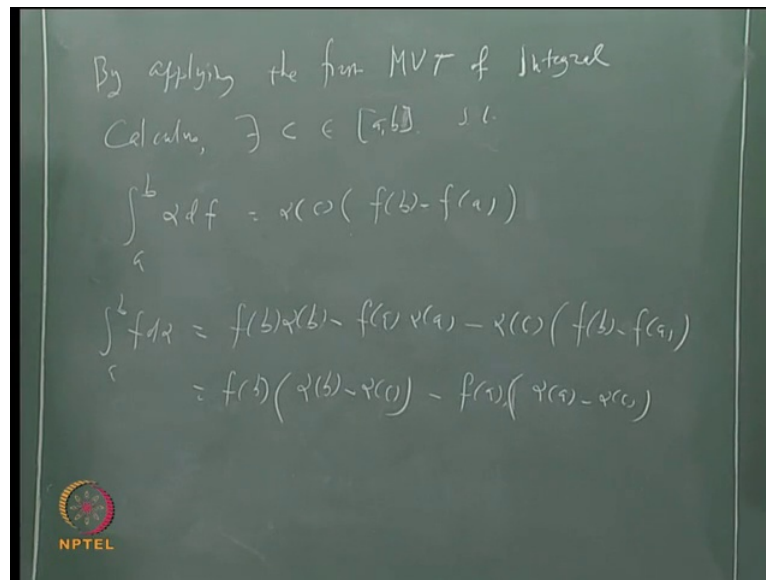 By applying the first MVT of Integral
Calculus, ∃ c ∈ [a,b] s.t.
∫_a^b α df = α(c) ( f(b) - f(a) )
∫_a^b f dα = f(b) α(b) - f(a) α(a) - α(c) ( f(b) - f(a) )
= f(b) ( α(b) - α(c) ) - f(a) ( α(a) - α(c) )
NPTEL